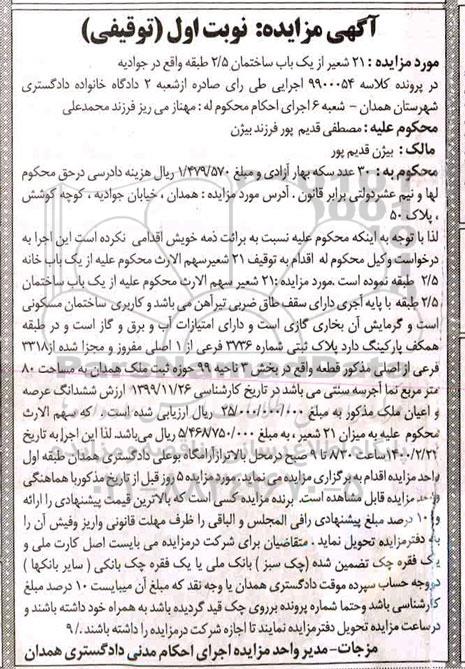 آگهی مزایده: نوبت اول (توقیفی)
مورد مزایده : ۲۱ شعیر از یک باب ساختمان ۲/۵ طبقه واقع در جوادیه
در پرونده کلاسه ۹۹۰۰۰۵۴ اجرایی طی رای صادره ازشعبه ۲ دادگاه خانواده دادگستری
شهرستان همدان - شعبه ۶ اجرای احکام محکوم له : مهناز می ریز فرزند محمدعلی
محکوم علیه : مصطفی قدیم پور فرزند بیژن
مالک : بیژن قدیم پور
محکوم به : ۳۰ عدد سکه بهار آزادی و مبلغ ۱/۴۷۹/۵۷۰ ریال هزینه دادرسی درحق محکوم
لها و نیم عشردولتی برابر قانون . آدرس مورد مزایده : همدان ، خیابان جوادیه ، کوچه کوشش
، پلاک ۵۰
لذا با توجه به اینکه محکوم علیه نسبت به برائت ذمه خویش اقدامی نکرده است این اجرا به
درخواست وکیل محکوم له اقدام به توقیف ۲۱ شعیرسهم الارث محکوم علیه از یک باب خانه
۲/۵ طبقه نموده است .مورد مزایده :۲۱ شعیر سهم الارث محکوم علیه از یک باب ساختمان
۲/۵ طبقه با پایه آجری دارای سقف طاق ضربی تیرآهن می باشد و کاربری ساختمان مسکونی
است و گرمایش آن بخاری گازی است و دارای امتیازات آب و برق و گاز است و در طبقه
همکف پارکینگ دارد پلاک ثبتی شماره ۳۷۳۶ فرعی از ۱ اصلی مفروز و مجزا شده از۳۳۱۸
فرعی از اصلی مذکور قطعه واقع در بخش ۲ ناحیه ۹۹ حوزه ثبت ملک همدان به مساحت ۸۰
متر مربع نما آجرسه سنتی می باشد در تاریخ کارشناسی ۱۳۹۹/۱۱/۲۶ ارزش ششدانگ عرصه
و اعیان ملک مذکور به مبلغ ۲۵/۰۰۰/۰۰۰/۰۰۰ ریال ارزیابی شده است . که سهم الارث
محکوم علیه به میزان ۲۱ شعیر ، به مبلغ ۵/۴۶۸/۷۵۰/۰۰۰ ریال می‌باشد. لذا این اجرابه تاریخ
۱۴۰۰/۲/۲۱ساعت ۸:۳۰ تا ۹ صبح درمحل بالاترازآرامگاه بوعلی دادگستری همدان طبقه اول
واحد مزایده اقدام به برگزاری مزایده می نماید. مورد مزایده ۵ روز قبل از تاریخ مذکوربا هماهنگی
واحد مزایده قابل مشاهده است. برنده مزایده کسی است که بالاترین قیمت پیشنهادی را ارائه
و ۱۰ درصد مبلغ پیشنهادی رافی المجلس و الباقی را ظرف مهلت قانونی واریز وفیش آن را
به دفترمزایده تحویل نماید . متقاضیان برای شرکت درمزایده می بایست اصل کارت ملی و
یک فقره چک تضمین شده (چک سبز ) بانک ملی یا یک فقره چک بانکی ( سایر بانکها )
دروجه حساب سپرده موقت دادگستری همدان یا وجه نقد که مبلغ آن میبایست ۱۰ درصد مبلغ
کارشناسی باشد وحتما شماره پرونده برروی چک قید گردیده باشد به همراه خود داشته باشند و
درساعت مزایده تحویل دفترمزایده نمایند تا اجازه شرکت درمزایده را داشته باشند. ۹/
مزجات- مدیر واحد مزایده اجرای احکام مدنی دادگستری همدان